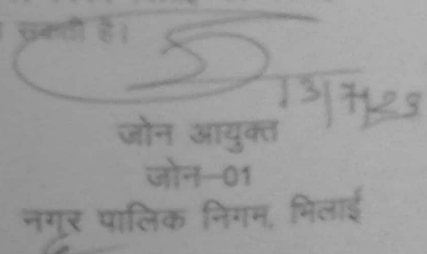 सकती है।
13/7/23
जोन आयुक्त
जोन-01
नगर पालिक निगम, भिलाई